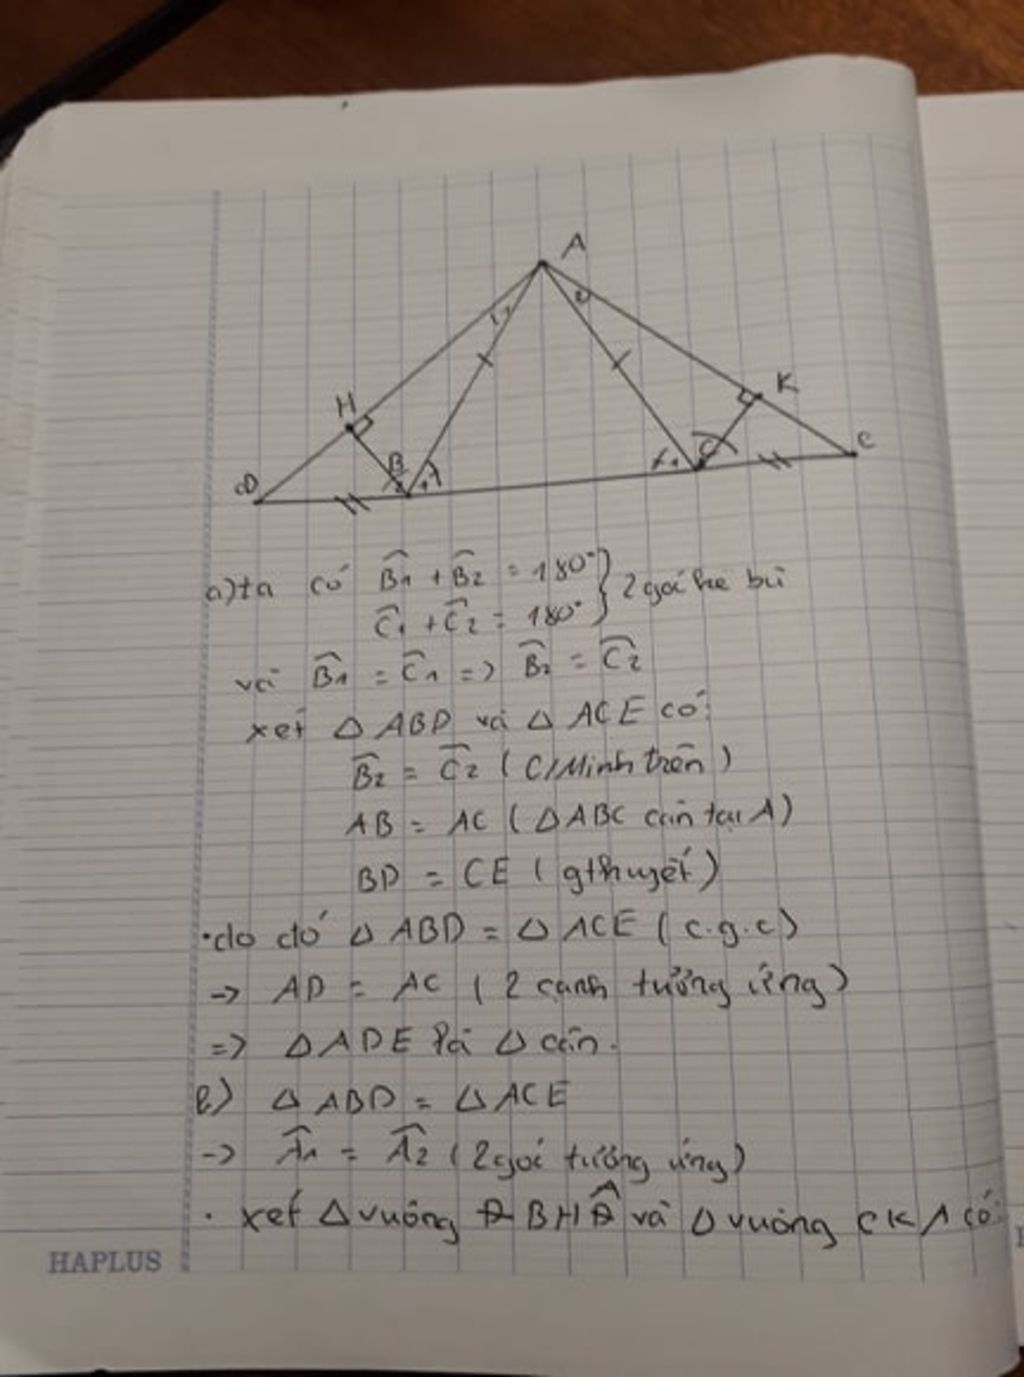 A
H
K
D
B
C
C
a) ta có B̂1 + B̂2 = 180° } 2 góc kề bù
Ĉ1 + Ĉ2 = 180°
và B̂1 = Ĉ1 => B̂2 = Ĉ2
xét Δ ABD và Δ ACE có:
B̂2 = Ĉ2 ( C/Minh trên )
AB = AC ( Δ ABC cân tại A )
BD = CE ( gthuyết )
. do đó Δ ABD = Δ ACE ( c.g.c )
-> AD = AC ( 2 cạnh tương ứng )
=> Δ ADE là Δ cân.
b) Δ ABD = Δ ACE
-> Â1 = Â2 ( 2 góc tương ứng )
. xét Δ vuông BHA và Δ vuông CKA có:
HAPLUS